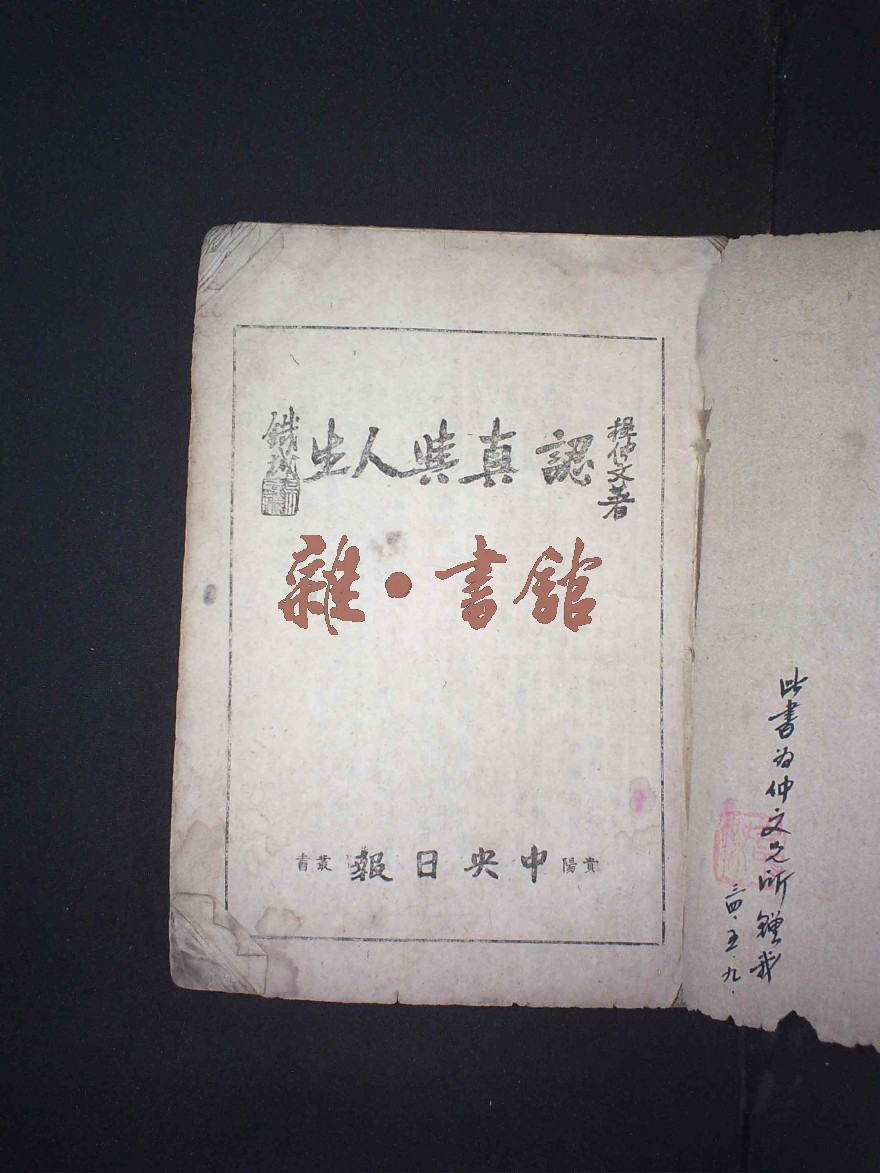 程仲文著
認真與人生
鐵城
雜·書館
貴陽
中央日報
叢書
此書為仲文兄所贈我
三四·五·九·